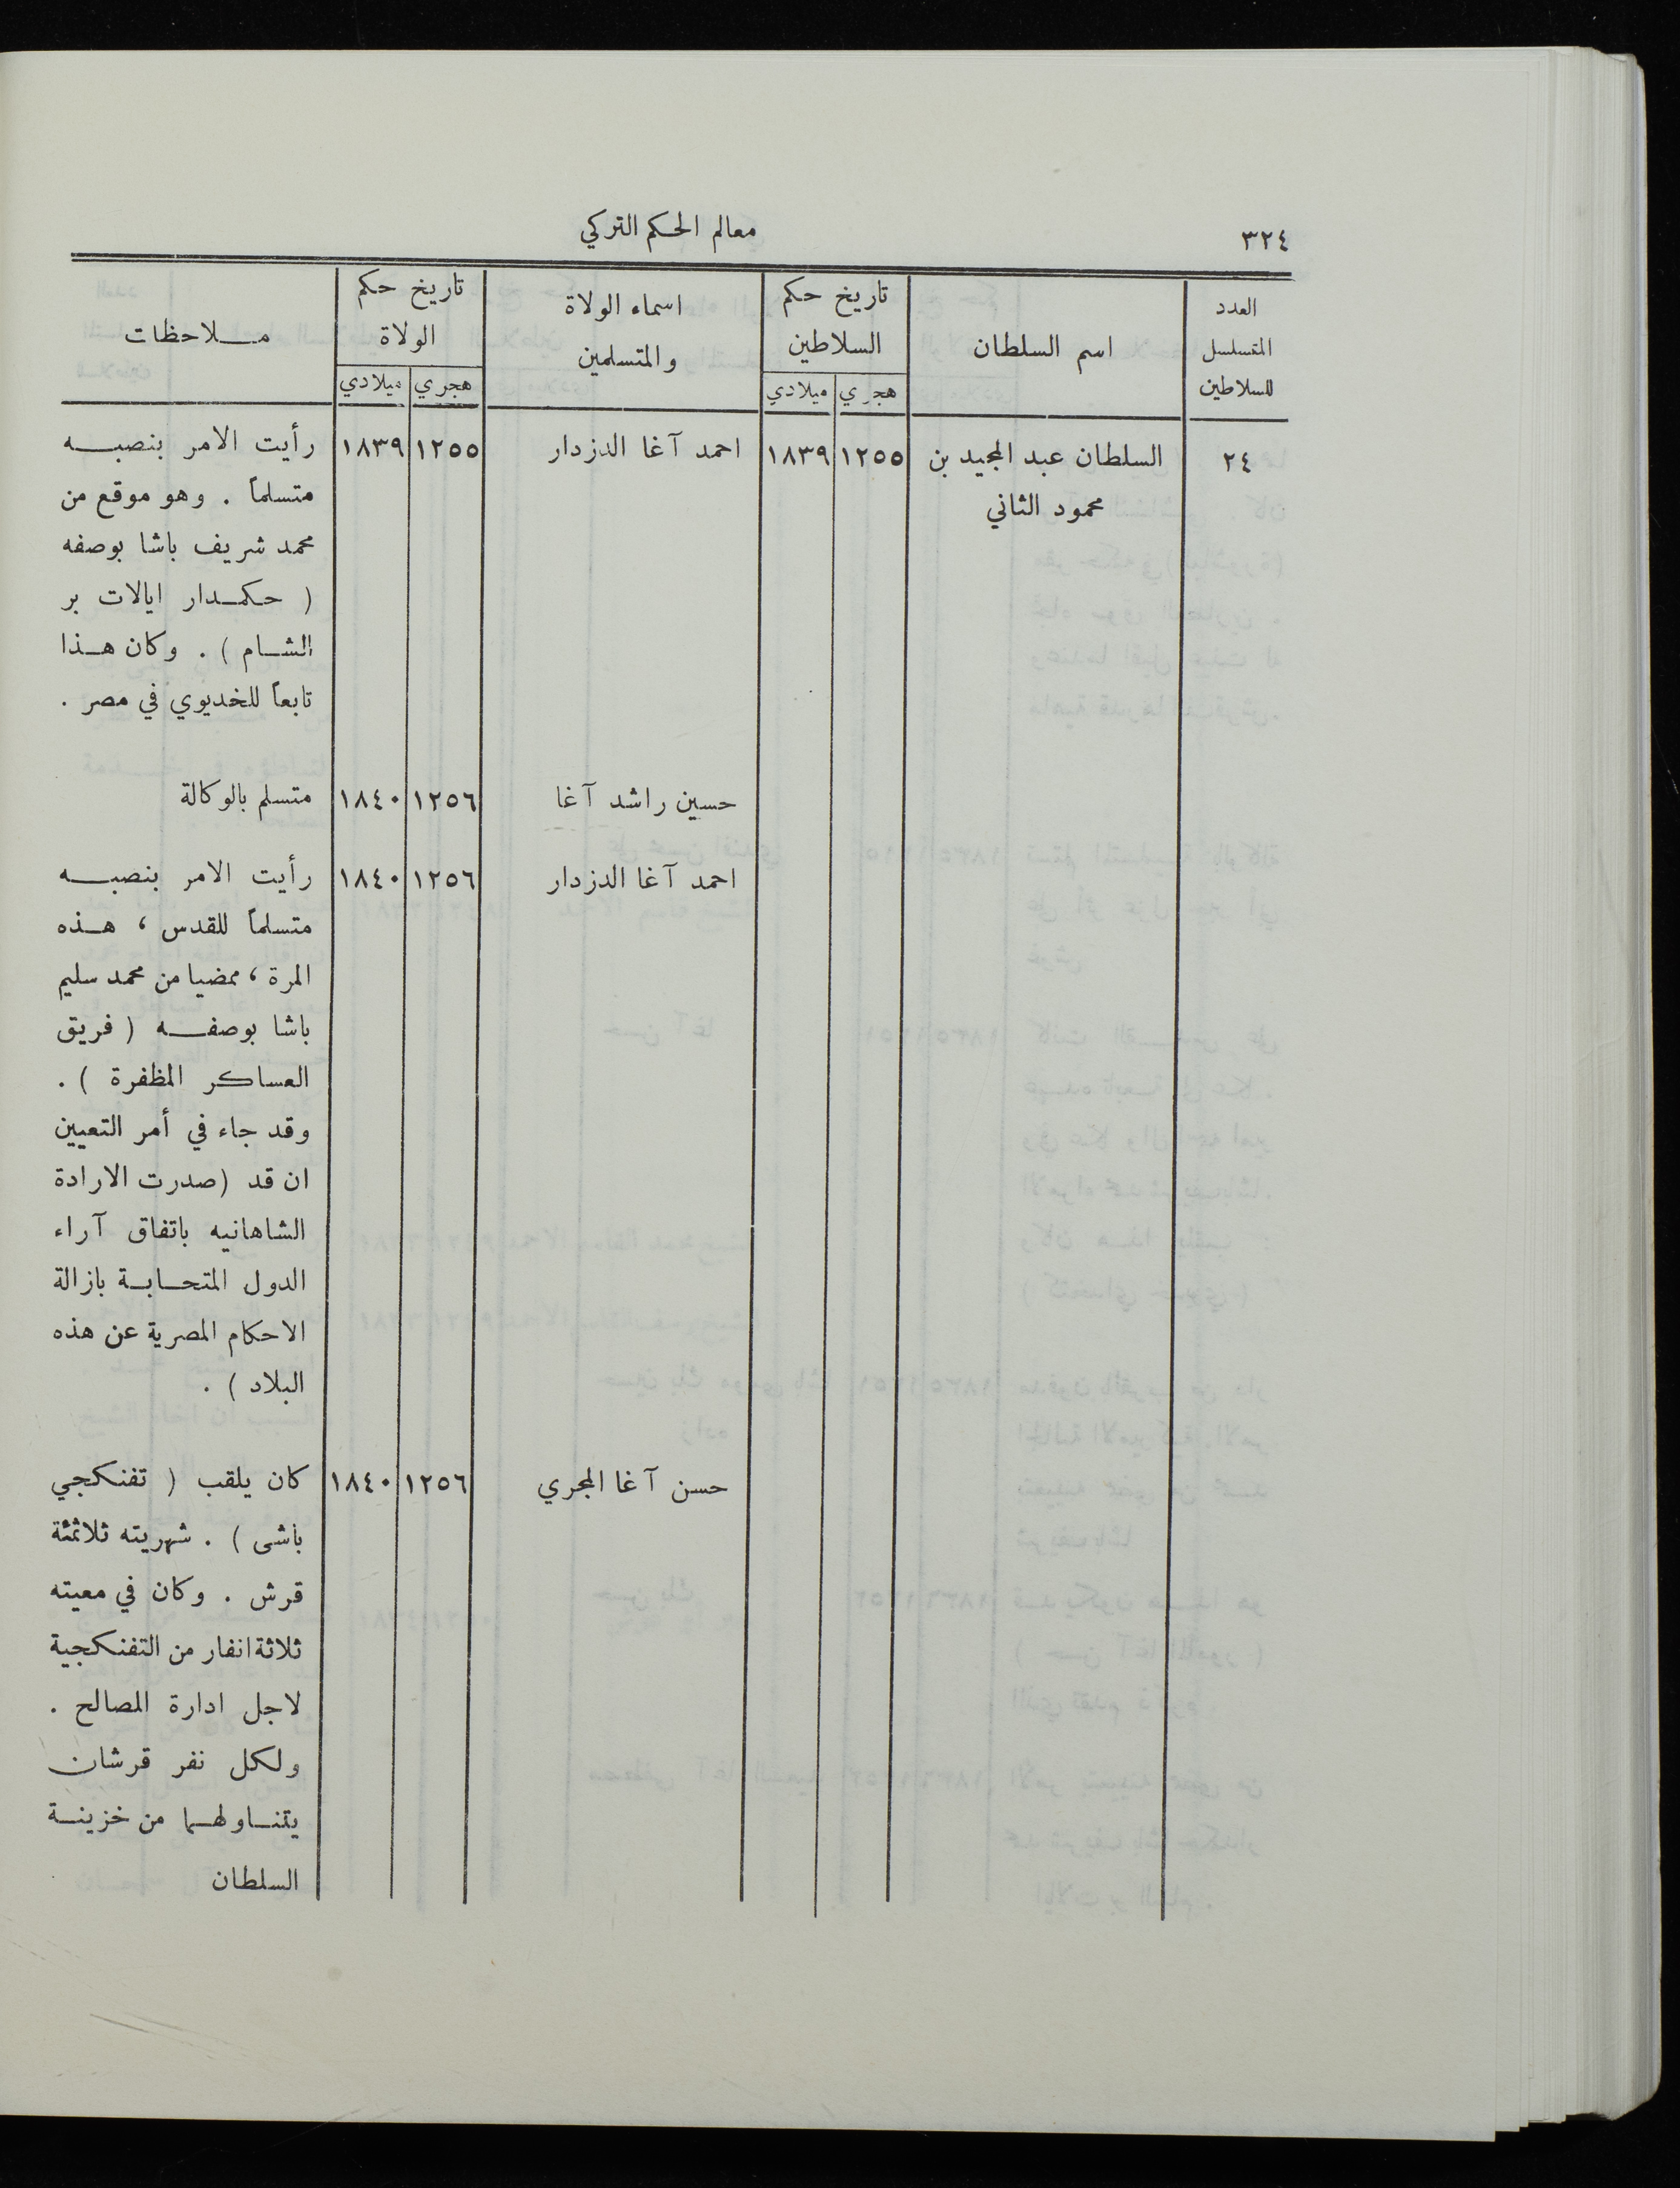 ٣٢٤
معالم الحكم التركي
العدد
المتسلسل
للسلاطين
اسم السلطان
تاريخ حكم
السلاطين
هجري
ميلادي
اسماء الولاة
والمتسلمين
تاريخ حكم
الولاة
هجري
ميلادي
مـلاحظات
٢٤
السلطان عبد المجيد بن
محمود الثاني
١٢٥٥
١٨٣٩
احمد آغا الدزدار
١٢٥٥
١٨٣٩
رأيت الامر بنصبـه
متسلماً . وهو موقع من
محمد شريف باشا بوصفه
( حكمـدار ايالات بر
الشـام ) . وكان هـذا
تابعاً للخديوي في مصر .
حسين راشد آغا
١٢٥٦
١٨٤٠
متسلم بالوكالة
احمد آغا الدزدار
١٢٥٦
١٨٤٠
رأيت الامر بنصبـه
متسلماً للقدس ، هـذه
المرة ، ممضيا من محمد سليم
باشا بوصفـه ( فريق
العساكر المظفرة ) .
وقد جاء في أمر التعيين
ان قد (صدرت الارادة
الشاهانيه باتفاق آراء
الدول المتحـابـة بازالة
الاحكام المصرية عن هذه
البلاد ) .
حسن آغا المجري
١٢٥٦
١٨٤٠
كان يلقب ( تفنكجي
باشى ) . شهريته ثلاثمئة
قرش . وكان في معيته
ثلاثة انفار من التفنكجية
لاجل ادارة المصالح .
ولكل نفر قرشان
يتنـاولهـما من خزينـة
السلطان